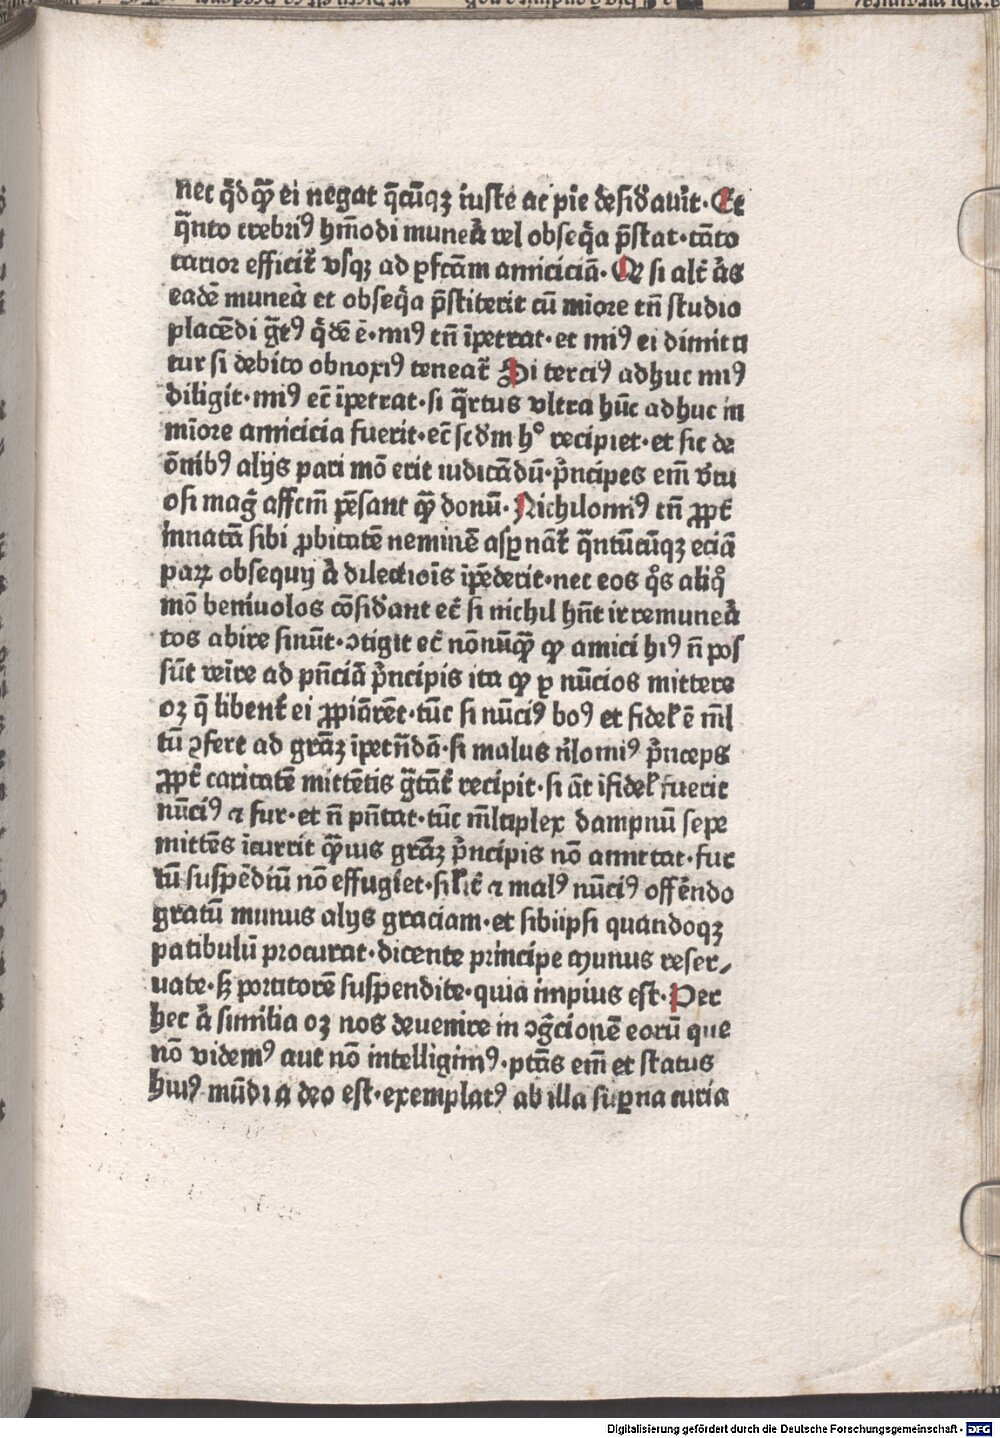 nec q̄dqꝫ̄ ei negat q̄cūqꝫ iuste ac pie deſid̓auit· Et
q̄nto crebriꝰ hm̄odi munea̓ vel obſeq̓a p̄ſtat·tāto
carior efficit̄ vſqꝫ ad ꝑfc̄am amiciciā· Qꝛ ſi alt̓ a̓s
eadē munea̓ et obſeq̓a p̄ſtiterit cū mīore tn̄ ſtudio
placēdi g̓tꝰ q̓dē ē·miꝰ tn̄ īpetrat·et miꝰ ei dimitti
tur ſi debito obnoxiꝰ teneat̄ Si terciꝰ adhuc miꝰ
diligit·miꝰ ec̄ īpetrat·ſi q̄rtus vltra hūc adhuc in
mīore amicicia fuerit·ec̄ ſcd̓m h° recipiet·et ſic de
ōnibꝰ alijs pari mō erit iudicādū·p̓ncipes em̄ v̓tu
oſi mag̓ affc̄m pēſant qꝫ̄ donū· Nichilomiꝰ tn̄ ꝓpt̓
innatā ſibi ꝓbitatē neminē aſꝑnāt̓ q̄ntūcūqꝫ eciā
parꝝ obſequij a̓ dilectiois̄ īpēderit·nec eos q̓s aliq°
mō beniuolos cōſid̓ant ec̄ ſi nichil hn̄t irremunea̓
tos abire ſinūt·ↄtigit ec̄ nōnūqꝫ̄ ꝙ amici hiꝰ n̄ poſ
ſūt veīre ad pn̄ciā p̓ncipis ita ꝙ ꝑ nūcios mittere
oꝫ q̄ libent̓ ei ꝓpiārēt·tūc ſi nūciꝰ boꝰ et fidel̓ ē ml̄
tū ↄfert ad grāꝫ īpetn̄dā·ſi malus n̓lomiꝰ p̓nceps
ꝓpt̓ caritatē mittētis g̓tāt̓ recipit·ſi āt īfidel̓ fuerit
nūciꝰ ⁊ fur·et n̄ pn̄tat·tūc ml̄tiplex dampnū ſepe
mittēs īcurrit qꝫ̄uis grāꝫ p̓ncipis nō amittat·fur
tū ſuſpēdiū nō effugiet·ſil̓it̓ ⁊ malꝰ nūciꝰ offēndo
gratū munus alijs graciam·et ſibiipſi quandoqꝫ
patibulū procurat·dicente principe munus reſer⸗
uate·ſꝫ portitorē ſuſpendite·quia impius eſt· Per
hec a̓ ſimilia oꝫ nos deuenire in ↄg̓cionē eorū que
nō videmꝰ aut nō intelligimꝰ·ptās em̄ et ſtatus
huiꝰ mūdi a deo eſt·exemplatꝰ ab illa ſuꝑna curia
Digitalisierung gefördert durch die Deutsche Forschungsgemeinschaft · DFG